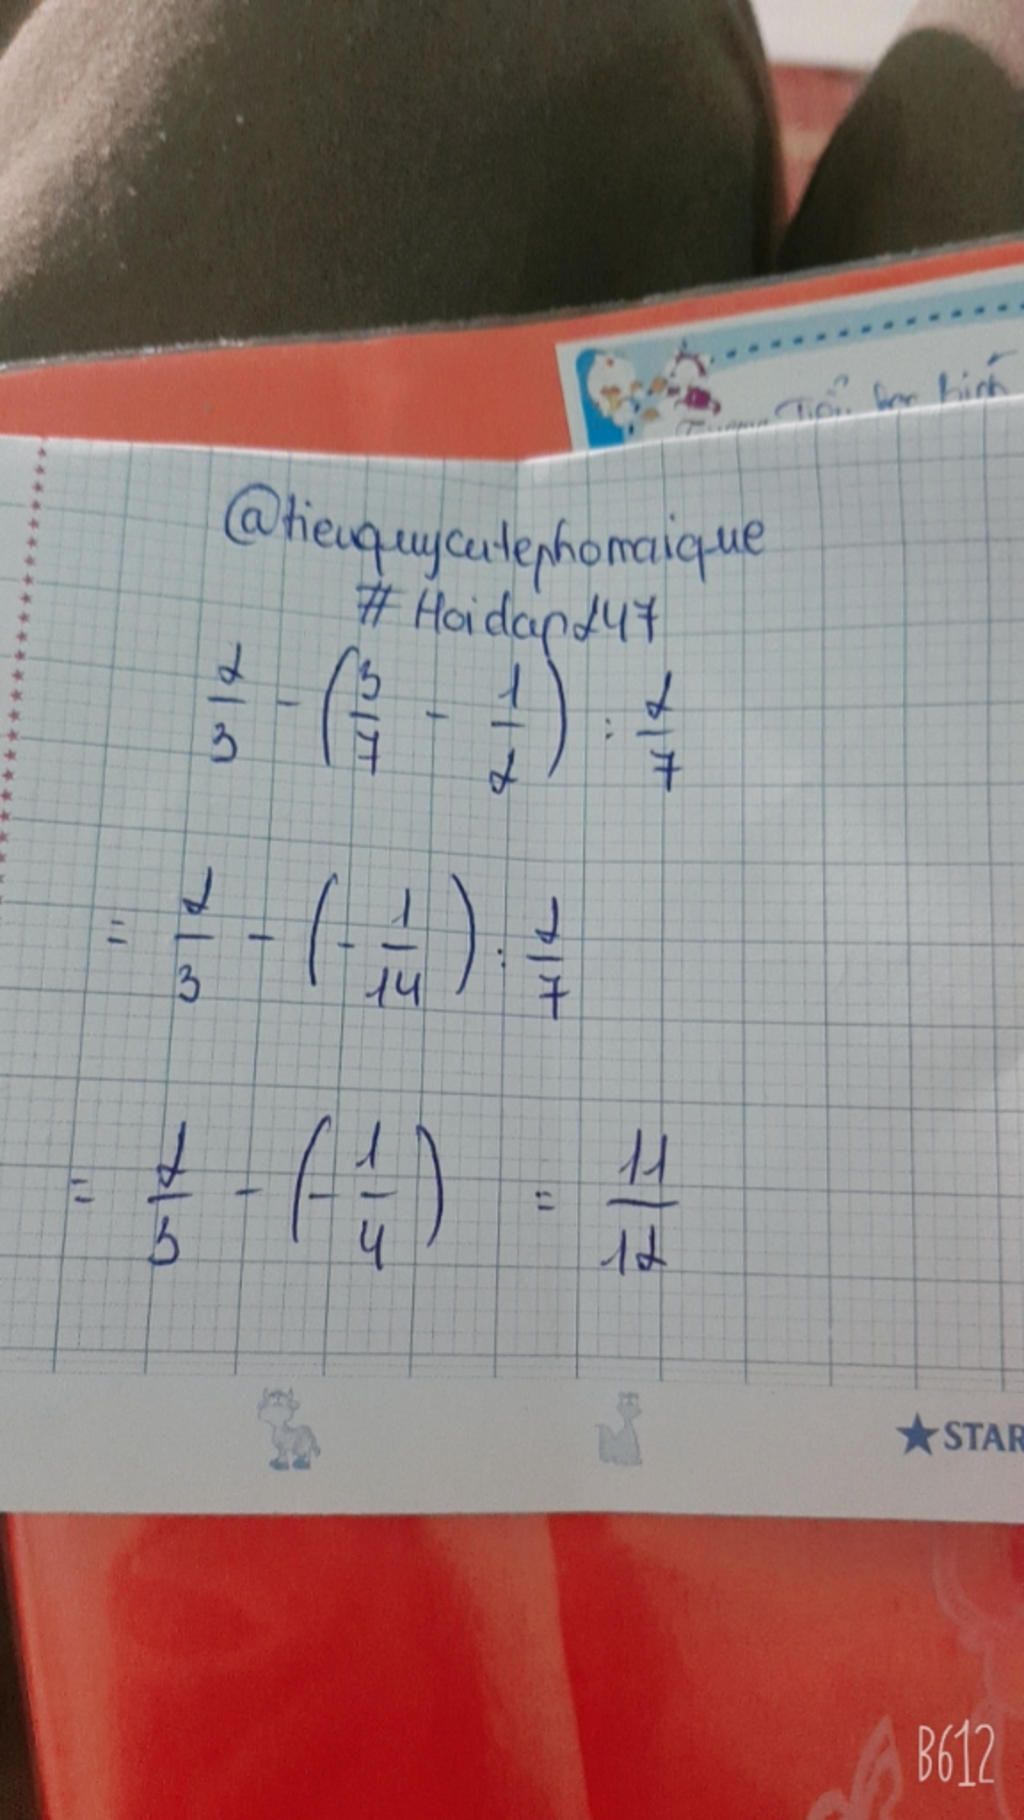 học
@tieuquycutephomaique
#Hoidap247
2/3 - (3/7 - 1/2) : 2/7
= 2/3 - (-1/14) : 2/7
= 2/3 - (-1/4) = 11/12
★STAR
B612